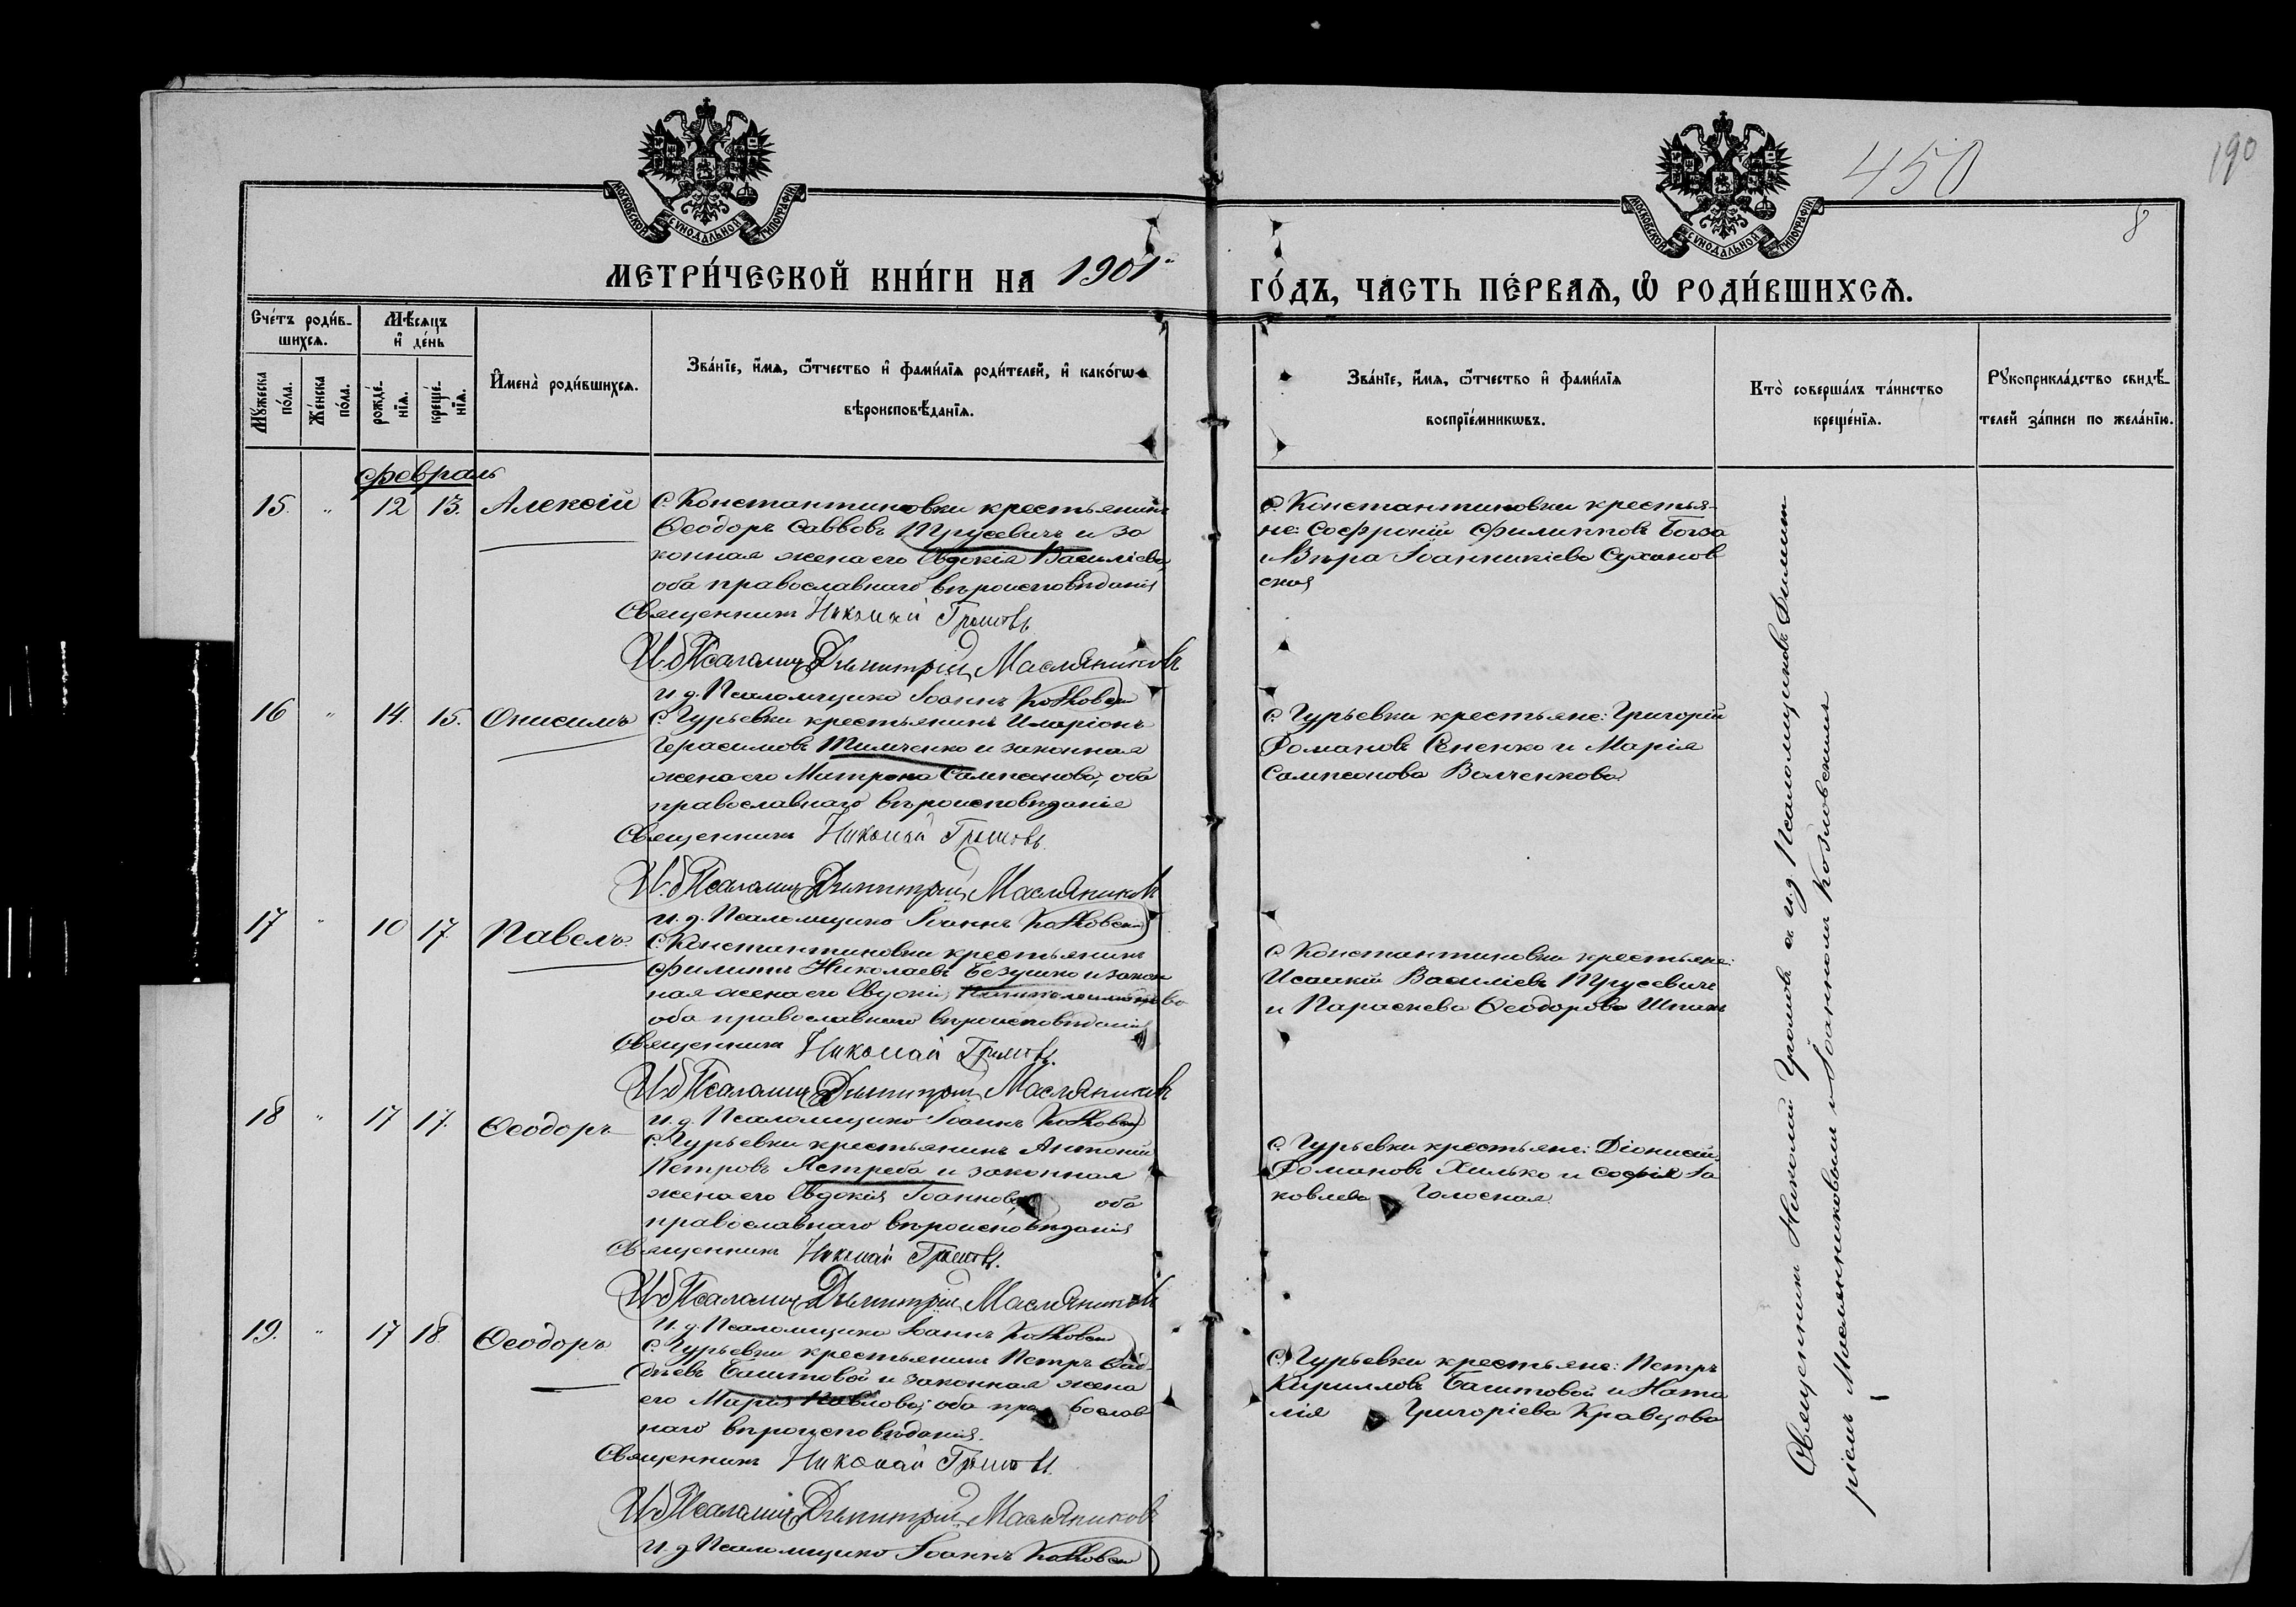 450
190
8
МОСКОВСКОЙ СѴНОДАЛЬНОЙ ТИПОГРАФІИ
МОСКОВСКОЙ СѴНОДАЛЬНОЙ ТИПОГРАФІИ
МЕТРИ́ЧЕСКОЙ КНИ́ГИ НА 1901 ГО́ДЪ, ЧАСТЬ ПЕ́РВАѦ, Ѡ҆ РОДИ́ВШИХСѦ.
Сче́тъ роди́в-
шихсѧ.
Мѣ́сѧцъ
и҆ де́нь
Мꙋ́жеска по́ла.
Же́нска по́ла.
рожде́нїѧ.
креще́нїѧ.
И҆мена̀ роди́вшихсѧ.
Зва́нїе, и҆́мѧ, ѻ҆́тчество и҆ фами́лїѧ роди́телей, и҆ како́гѡ
вѣроисповѣ́данїѧ.
Зва́нїе, и҆́мѧ, ѻ҆́тчество и҆ фами́лїѧ
воспрїе́мникѡвъ.
Кто̀ соверша́лъ та́инство
креще́нїѧ.
Рꙋкоприкла́дство свидѣ́-
телей за́писи по жела́нїю.
Февраль
15. " 12 13. Алексій
С. Константиновки крестьянинъ
Ѳеодоръ Саввовъ Трусевичъ и за
конная жена его Евдокія Василіева,
оба православнаго вѣроисповѣданія
Священникъ Николай Громовъ
И. д. Псаломщ Димитрій Масляниковъ
и. д. Псаломщика Іоаннъ Козловскій
С. Константиновки крестья-
не: Софроній Филипповъ Богза
и Вѣра Іоанникіева Суханов
ская
16 " 14. 15. Онисимъ
С. Гурьевки крестьянинъ Иларіонъ
Герасимовъ Тимченко и законная
жена его Матрона Сампсонова, оба
православнаго вѣроисповѣданія
Священникъ Николай Громовъ.
И. д. Псаломщ Димитрій Масляниковъ
и. д. Псаломщика Іоаннъ Козловскій
С. Гурьевки крестьяне: Григорій
Романовъ Сененко и Марія
Сампсонова Волченкова
17 " 10 17. Павелъ
С. Константиновки крестьянинъ
Филиппъ Николаевъ Безушко и закон
ная жена его Евдокія
оба православнаго вѣроисповѣданія
Священникъ Николай Громовъ.
И. д. Псаломщ Димитрій Масляниковъ
и. д. Псаломщика Іоаннъ Козловскій
С. Константиновки крестьяне:
Исаакій Василіевъ Трусевичъ
и Параскева Ѳеодорова Шпакъ
18 " 17 17. Ѳеодоръ
С. Гурьевки крестьянинъ Антоній
Петровъ Ястреба и законная
жена его Евдокія Іоаннова, оба
православнаго вѣроисповѣданія
Священникъ Николай Громовъ.
И. д. Псаломщ Димитрій Масляниковъ
И. д. Псаломщика Іоаннъ Козловскій
С. Гурьевки крестьяне: Діонисій
Романовъ Хилько и Софія Іа
ковлева Голосная
19. " 17 18 Ѳеодоръ
С. Гурьевки крестьянинъ Петръ Ѳад-
дѣевъ Баштовой и законная жена
его Марія Павлова, оба православ
наго вѣроисповѣданія.
Священникъ Николай Громовъ.
И. д. Псаломщ Димитрій Масляниковъ
И. д. Псаломщика Іоаннъ Козловскій
С. Гурьевки крестьяне: Петръ
Кирилловъ Баштовой и Ната
лія Григоріева Кравцова
Священникъ Николай Громовъ съ и. д. Псаломщиковъ Димит
ріемъ Маслянниковымъ и Іоанномъ Козловскимъ